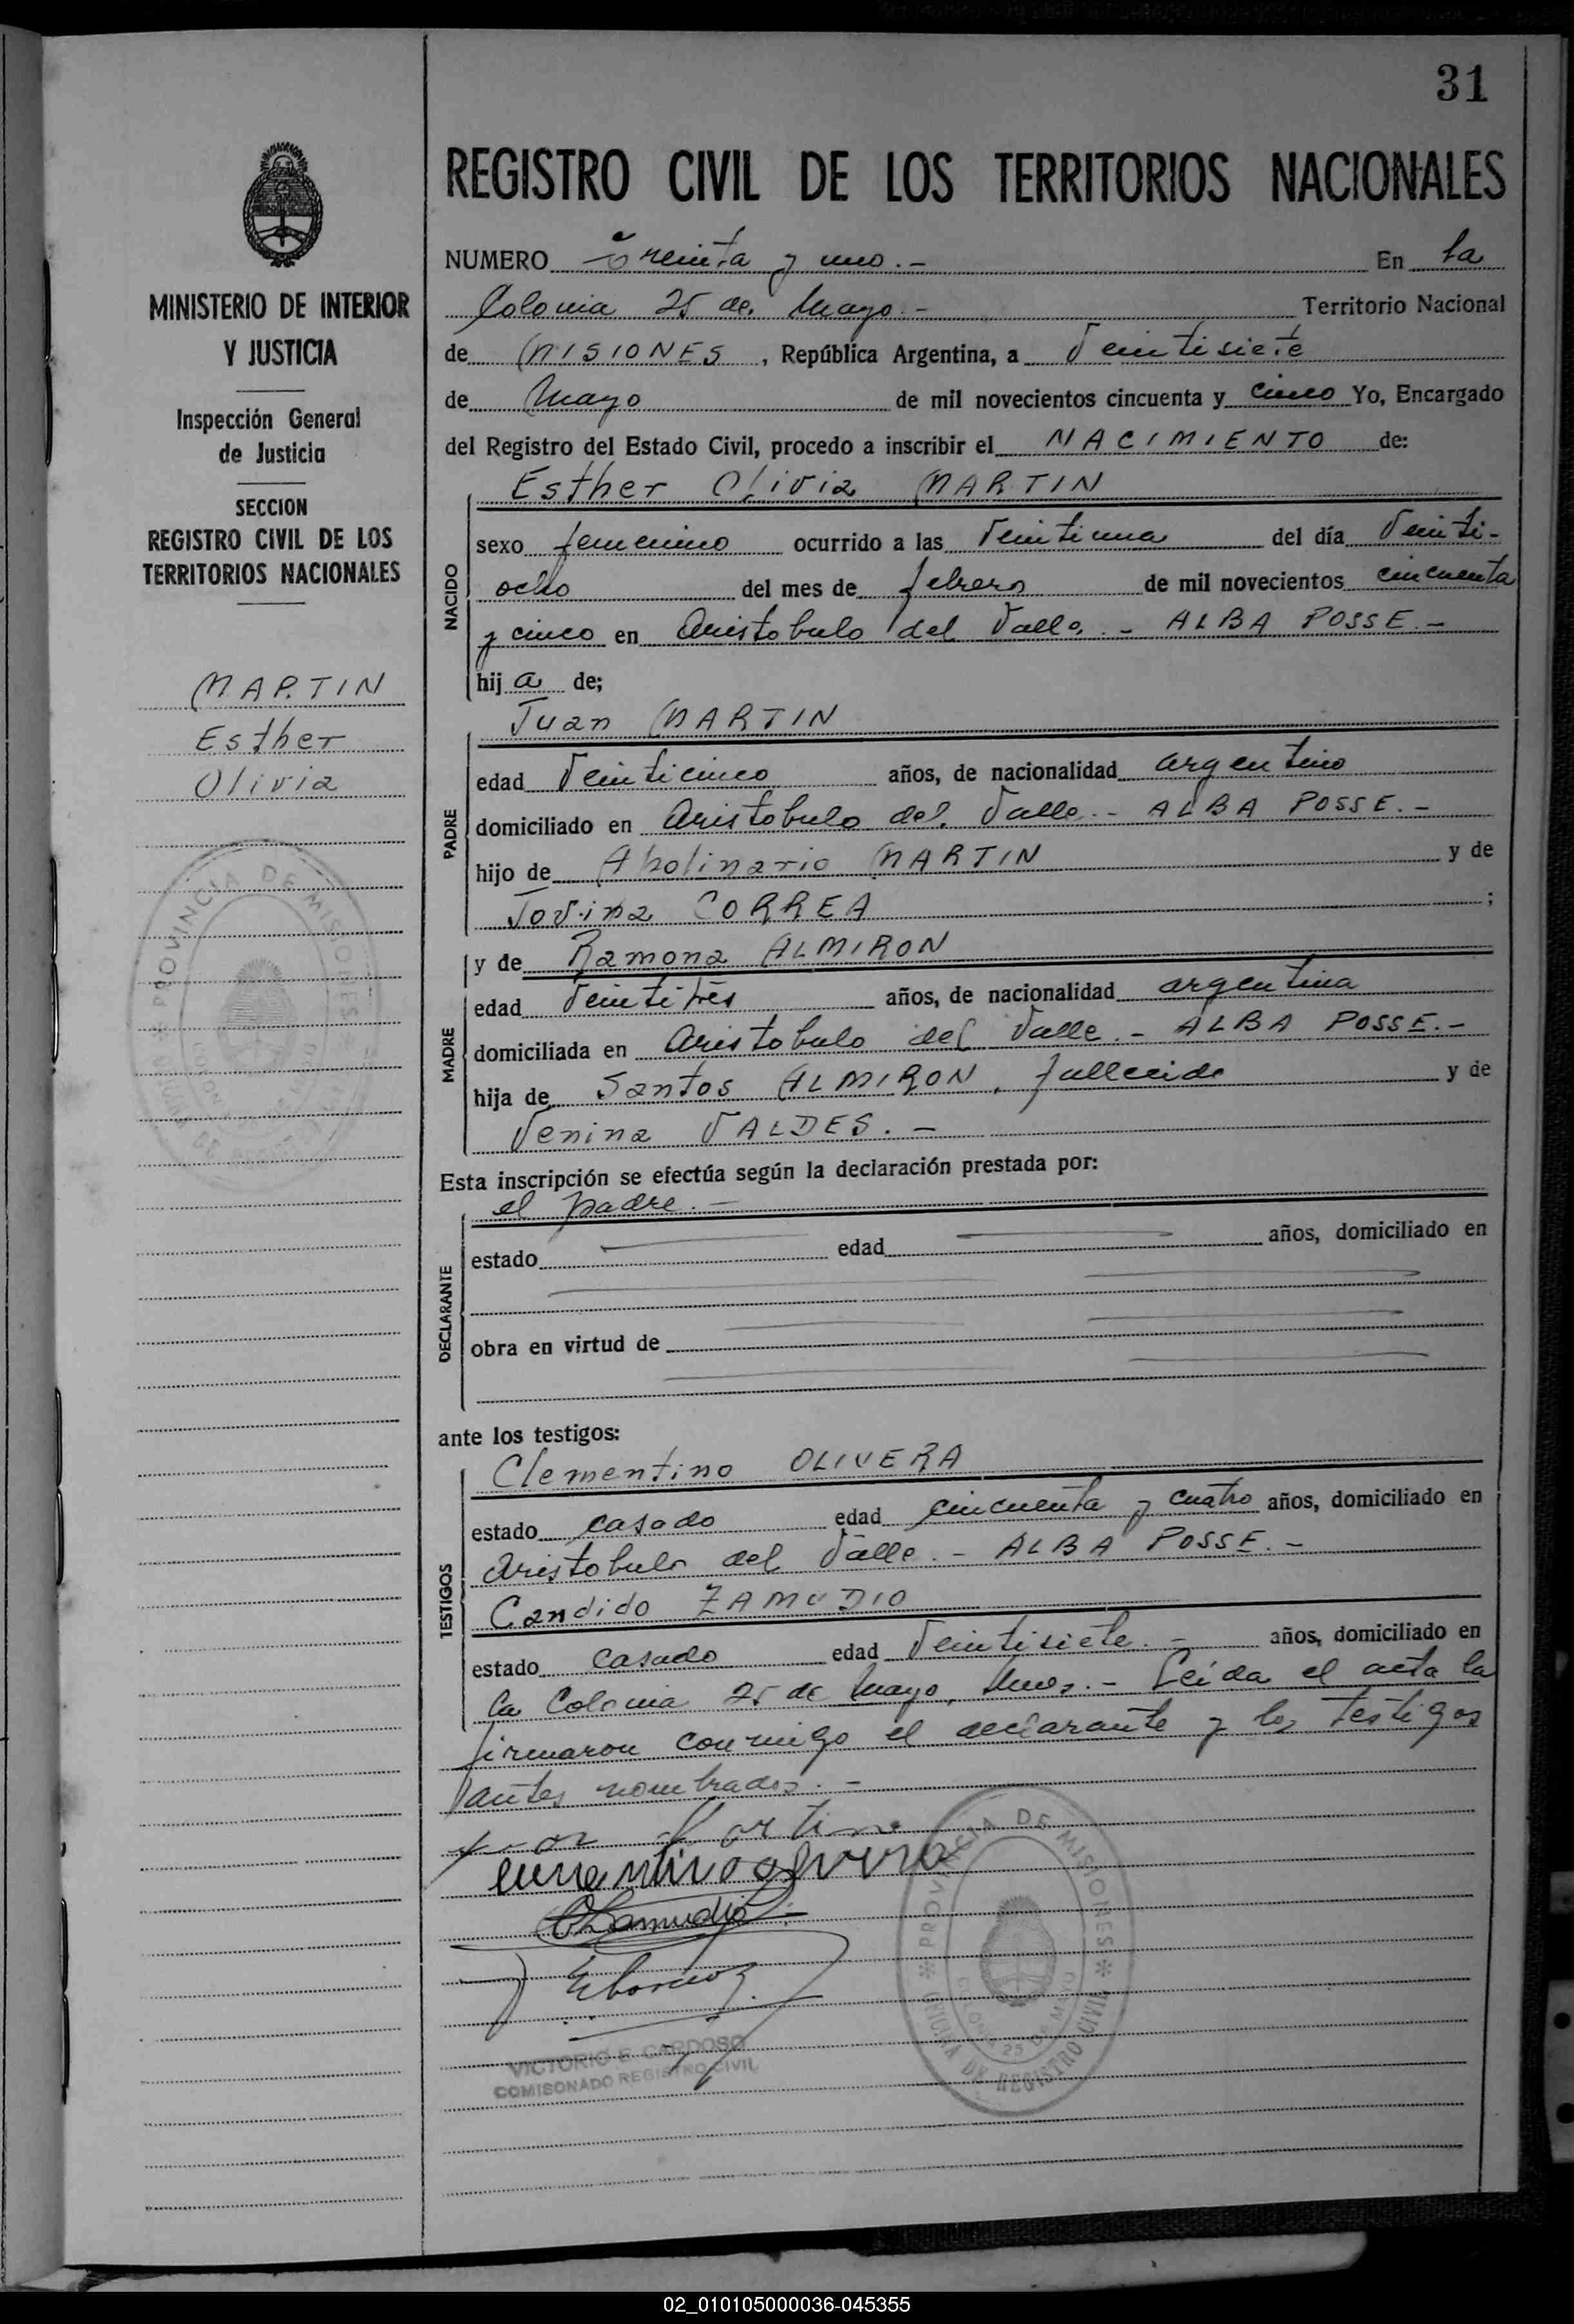 31
REGISTRO CIVIL DE LOS TERRITORIOS NACIONALES
MINISTERIO DE INTERIOR
Y JUSTICIA
Inspección General
de Justicia
SECCION
REGISTRO CIVIL DE LOS
TERRITORIOS NACIONALES
MARTIN
Esther
Olivia
PROVINCIA DE MISIONES
NUMERO Treinta y uno.- En la
Colonia 25 de Mayo.- Territorio Nacional
de MISIONES, República Argentina, a Veintisiete
de Mayo de mil novecientos cincuenta y cinco Yo, Encargado
del Registro del Estado Civil, procedo a inscribir el NACIMIENTO de:
NACIDO
Esther Olivia MARTIN
sexo femenino ocurrido a las Veintiuna del día Veinti-
ocho del mes de febrero de mil novecientos cincuenta
y cinco en Aristobulo del Valle.- ALBA POSSE.-
hij a de;
PADRE
Juan MARTIN
edad Veinticinco años, de nacionalidad argentino
domiciliado en Aristobulo del Valle.- ALBA POSSE.-
hijo de Apolinario MARTIN y de
Jovina CORREA ;
y de Ramona ALMIRON
MADRE
edad Veintitrés años, de nacionalidad argentina
domiciliada en Aristobulo del Valle.- ALBA POSSE.-
hija de Santos ALMIRON, fallecido y de
Venina VALDES.-
Esta inscripción se efectúa según la declaración prestada por:
el padre.-
DECLARANTE
estado edad años, domiciliado en
obra en virtud de
ante los testigos:
TESTIGOS
Clementino OLIVERA
estado casado edad cincuenta y cuatro años, domiciliado en
Aristobulo del Valle.- ALBA POSSE.-
Candido ZAMUDIO
estado casado edad Veintisiete.- años, domiciliado en
la Colonia 25 de Mayo, Mnes.- Leída el acta la
firmaron conmigo el declarante y los testigos
antes nombrados.-
Martin
CZamudio
VICTORIO E. CARDOSO
COMISONADO REGISTRO CIVIL
PROVINCIA DE MISIONES
OFICINA DE REGISTRO CIVIL
COLONIA 25 DE MAYO
02_010105000036-045355